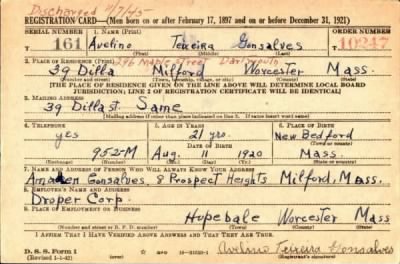 Discharged 11/7/45
REGISTRATION CARD—(Men born on or after February 17, 1897 and on or before December 31, 1921)
SERIAL NUMBER 1. NAME (Print) ORDER NUMBER
161 Avelino Texeira Gonsalves 10247
(First) (Middle) (Last)
296 Maple Street Dartmouth
2. PLACE OF RESIDENCE (Print)
39 Dilla Milford Worcester Mass.
(Number and street) (Town, township, village, or city) (County) (State)
[THE PLACE OF RESIDENCE GIVEN ON THE LINE ABOVE WILL DETERMINE LOCAL BOARD
JURISDICTION; LINE 2 OF REGISTRATION CERTIFICATE WILL BE IDENTICAL]
3. MAILING ADDRESS
39 Dilla st. Same
[Mailing address if other than place indicated on line 2. If same insert word same]
4. TELEPHONE 5. AGE IN YEARS 6. PLACE OF BIRTH
yes 21 yrs. New Bedford
DATE OF BIRTH (Town or county)
952-M Aug. 11 1920 Mass.
(Exchange) (Number) (Mo.) (Day) (Yr.) (State or country)
7. NAME AND ADDRESS OF PERSON WHO WILL ALWAYS KNOW YOUR ADDRESS
Gonsalves, 8 Prospect Heights Milford, Mass.
8. EMPLOYER'S NAME AND ADDRESS
Draper Corp.
9. PLACE OF EMPLOYMENT OR BUSINESS
Hopedale Worcester Mass
(Number and street or R. F. D. number) (Town) (County) (State)
I AFFIRM THAT I HAVE VERIFIED ABOVE ANSWERS AND THAT THEY ARE TRUE.
D. S. S. Form 1
(Revised 1-1-42) Avelino Teixeira Gonsalves
(Registrant's signature)